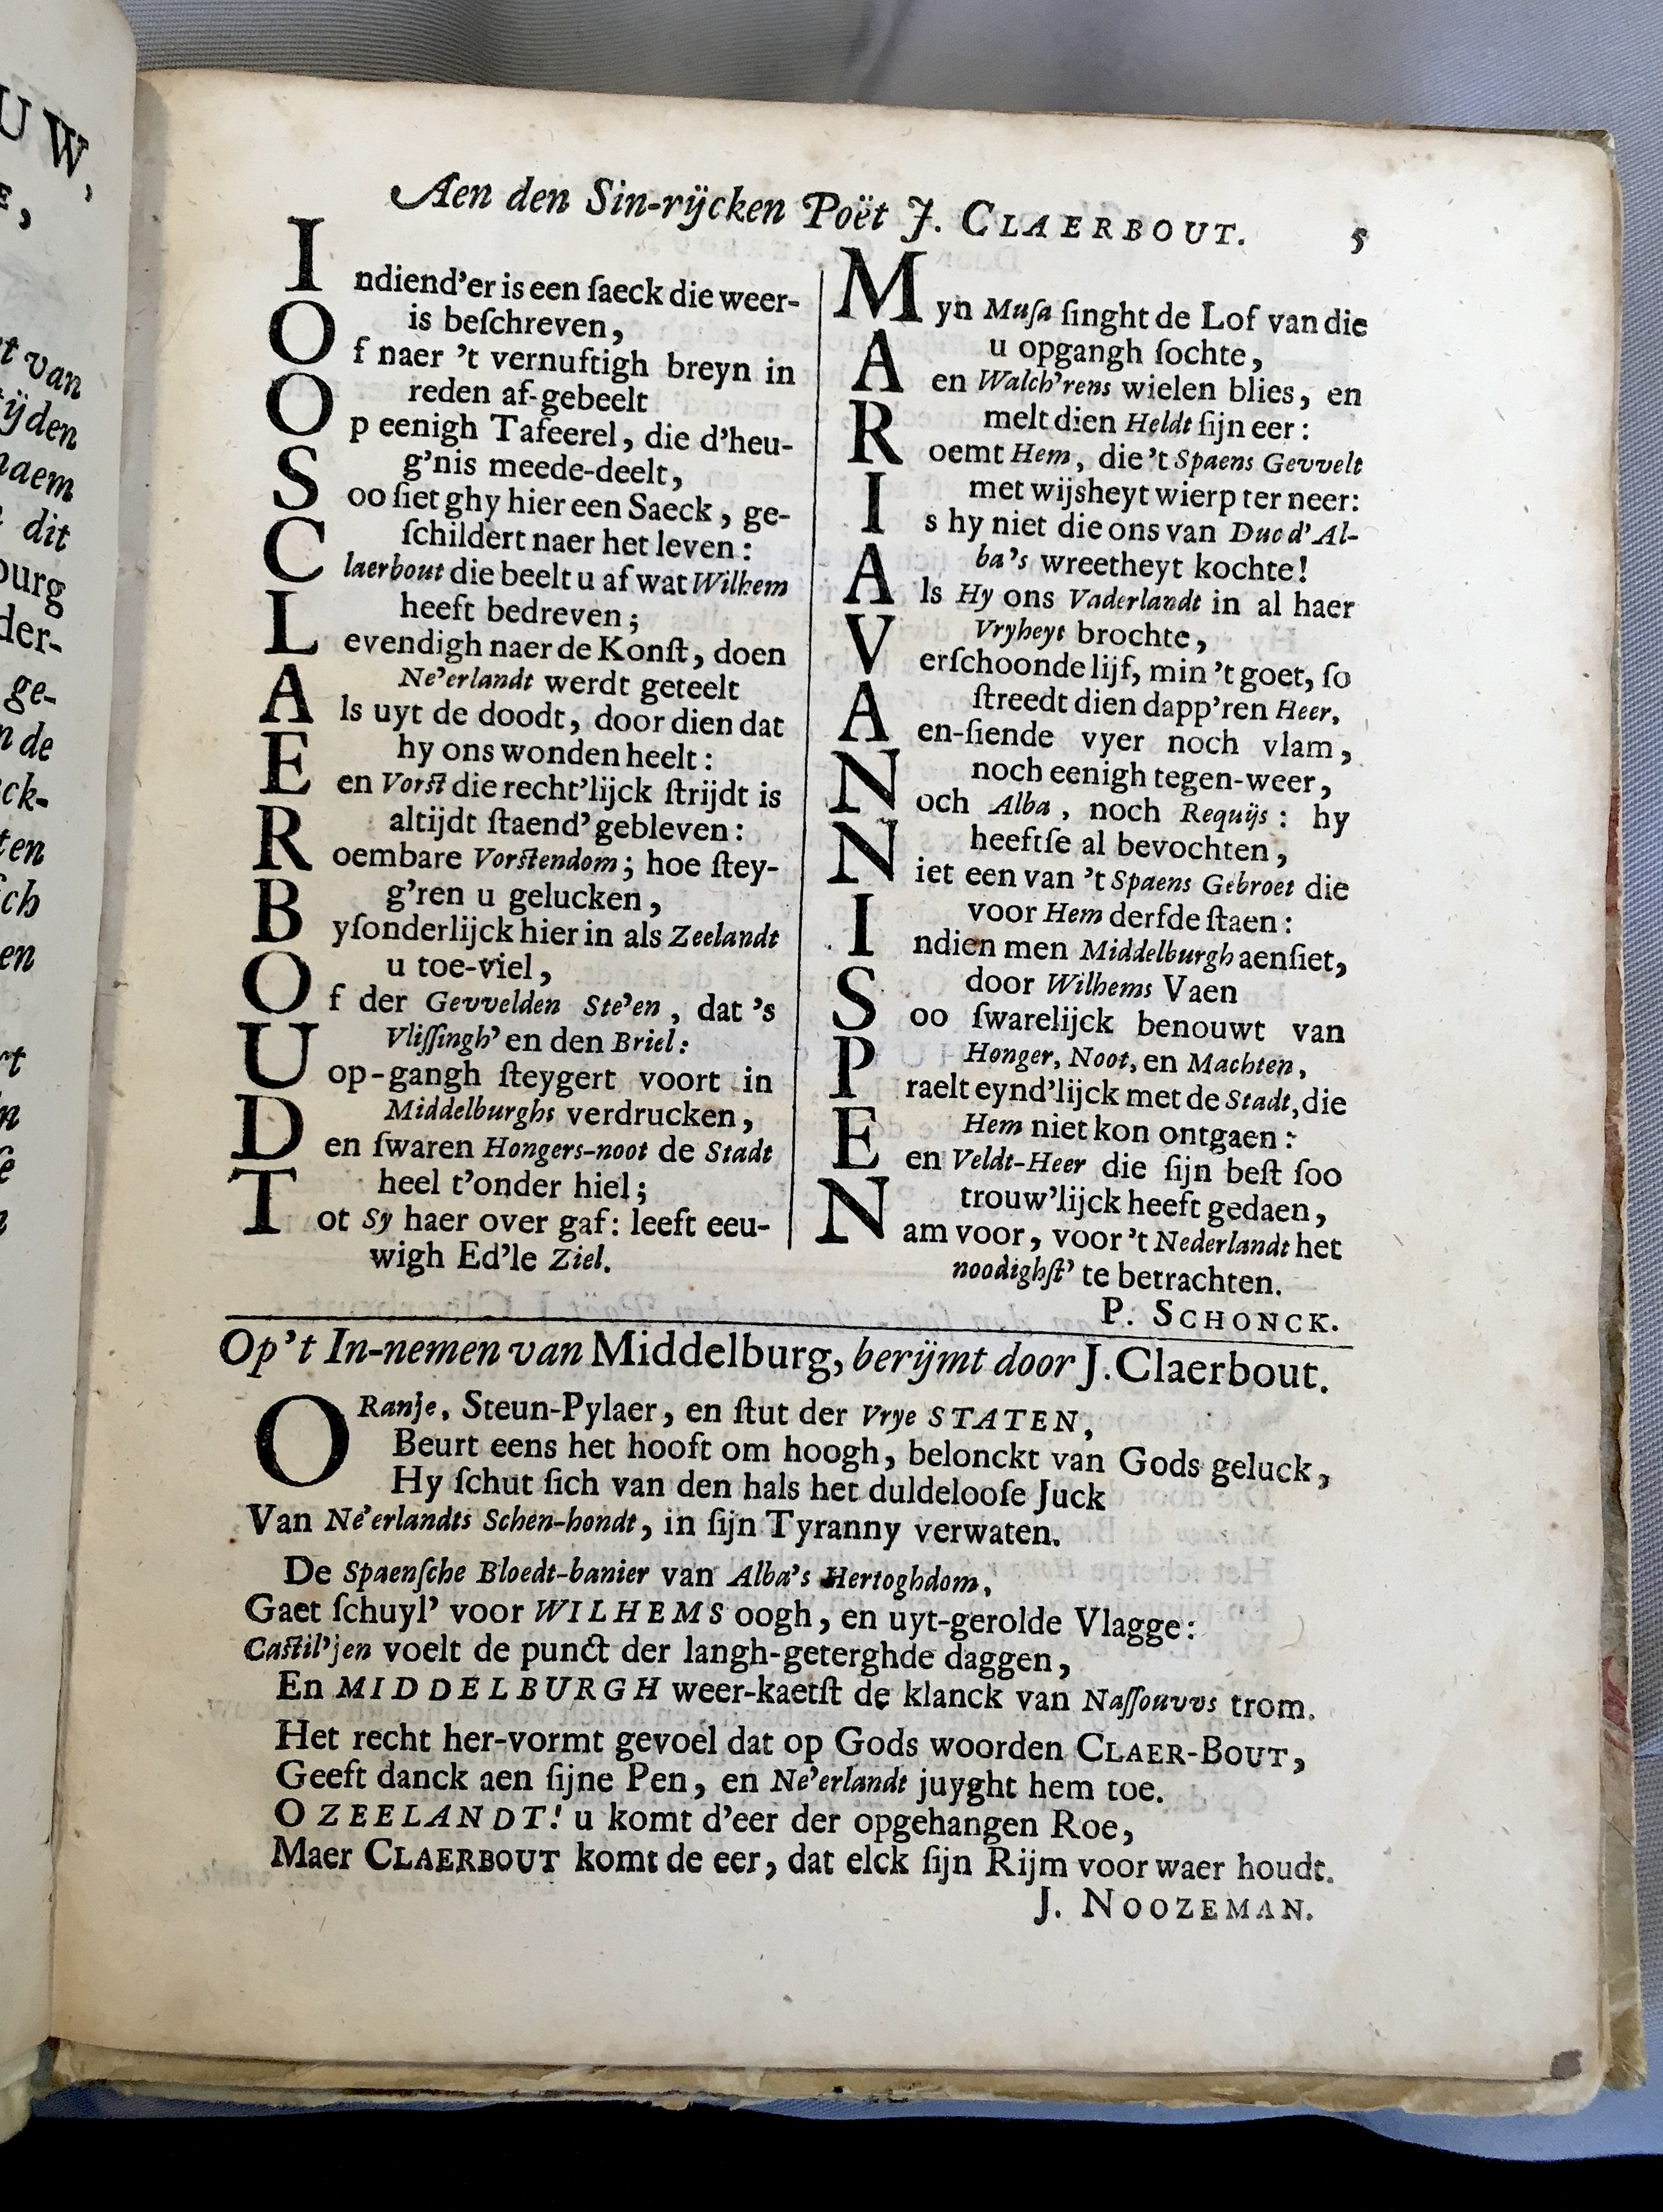 Aen den Sin-rijcken Poët J. CLAERBOUT. 5
Indiend'er is een ſaeck die weer-
is beſchreven,
Of naer 't vernuftigh breyn in
reden af-gebeelt
Op eenigh Tafeerel, die d'heu-
g'nis meede-deelt,
Soo ſiet ghy hier een Saeck, ge-
ſchildert naer het leven:
Claerbout die beelt u af wat Wilhem
heeft bedreven;
Levendigh naer de Konſt, doen
Ne'erlandt werdt geteelt
Als uyt de doodt, door dien dat
hy ons wonden heelt:
Een Vorſt die recht'lijck ſtrijdt is
altijdt ſtaend' gebleven:
Roembare Vorſtendom; hoe ſtey-
g'ren u gelucken,
Byſonderlijck hier in als Zeelandt
u toe-viel,
Of der Gevvelden Ste'en, dat 's
Vliſſingh' en den Briel:
U op-gangh ſteygert voort in
Middelburghs verdrucken,
Den ſwaren Hongers-noot de Stadt
heel t'onder hiel;
Tot Sy haer over gaf: leeft eeu-
wigh Ed'le Ziel.
Myn Muſa ſinght de Lof van die
u opgangh ſochte,
Aen Walch'rens wielen blies, en
melt dien Heldt ſijn eer:
Roemt Hem, die 't Spaens Gevvelt
met wijsheyt wierp ter neer:
Is hy niet die ons van Duc d'Al-
ba's wreetheyt kochte!
Als Hy ons Vaderlandt in al haer
Vryheyt brochte,
Verſchoonde lijf, min 't goet, ſo
ſtreedt dien dapp'ren Heer,
Aen-ſiende vyer noch vlam,
noch eenigh tegen-weer,
Noch Alba, noch Requijs: hy
heeftſe al bevochten,
Niet een van 't Spaens Gebroet die
voor Hem derfde ſtaen:
Indien men Middelburgh aenſiet,
door Wilhems Vaen
Soo ſwarelijck benouwt van
Honger, Noot, en Machten,
Praelt eynd'lijck met de Stadt, die
Hem niet kon ontgaen:
Een Veldt-Heer die ſijn beſt ſoo
trouw'lijck heeft gedaen,
Nam voor, voor 't Nederlandt het
noodighſt' te betrachten.
P. SCHONCK.
Op't In-nemen van Middelburg, berijmt door J. Claerbout.
ORanje, Steun-Pylaer, en ſtut der Vrye STATEN,
Beurt eens het hooft om hoogh, belonckt van Gods geluck,
Hy ſchut ſich van den hals het duldelooſe Juck
Van Ne'erlandts Schen-hondt, in ſijn Tyranny verwaten.
De Spaenſche Bloedt-banier van Alba's Hertoghdom,
Gaet ſchuyl' voor WILHEMS oogh, en uyt-gerolde Vlagge:
Caſtil'jen voelt de punct der langh-geterghde daggen,
En MIDDELBURGH weer-kaetſt de klanck van Naſſouvvs trom.
Het recht her-vormt gevoel dat op Gods woorden CLAER-BOUT,
Geeft danck aen ſijne Pen, en Ne'erlandt juyght hem toe.
O ZEELANDT! u komt d'eer der opgehangen Roe,
Maer CLAERBOUT komt de eer, dat elck ſijn Rijm voor waer houdt.
J. NOOZEMAN.